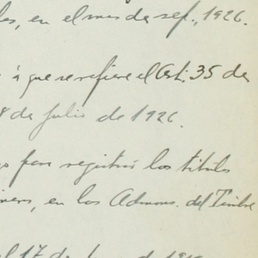 en el mes de sep., 1926.
á que se refiere el Art. 35 de
8 de Julio de 1926.
para registrar los títulos
en las Admons. del Timbre
17 de